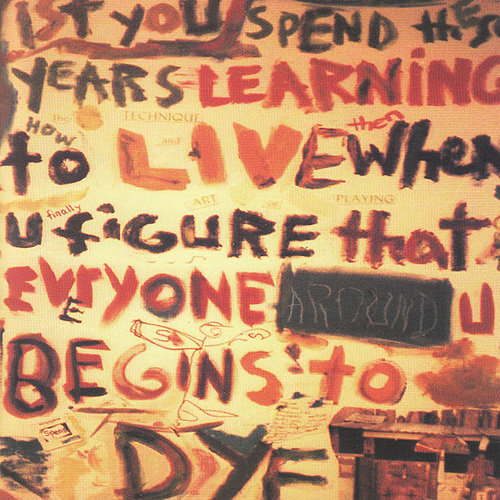 1ST YOU SPEND thESe
YEARS LEARNING
The TECHNIQUE and
HOW then
to LIVE When
ART OF PLAYING
finally
U FiGURE that
EVErYONE AROUND U
E
BEGINS to
Spend
DYE